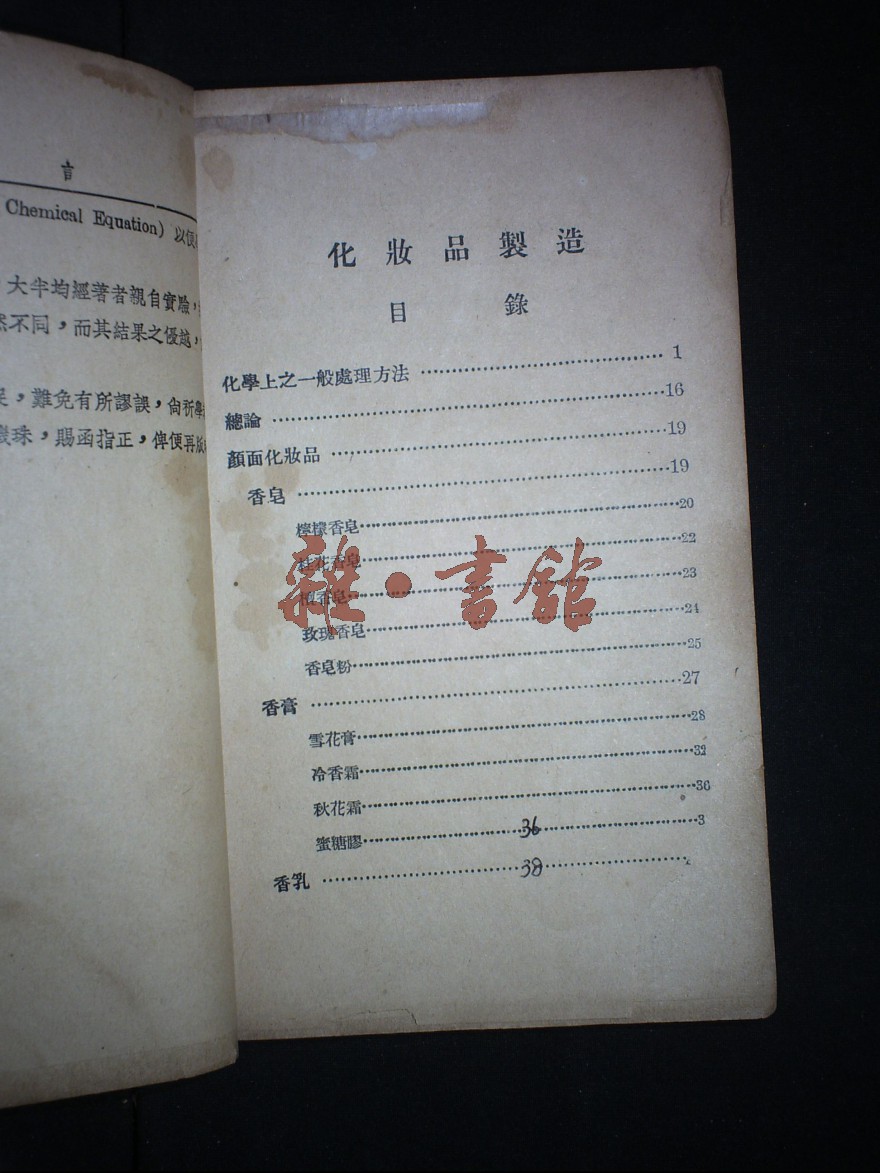 言
Chemical Equation) 以便
大半均經著者親自實驗,
然不同,而其結果之優越,
難免有所謬誤,尙祈學
珠,賜函指正,俾便再版
化妝品製造
目錄
化學上之一般處理方法 ⋯⋯ 1
總論 ⋯⋯ 16
顏面化妝品 ⋯⋯ 19
香皂 ⋯⋯ 19
檸檬香皂 ⋯⋯ 20
桂花香皂 ⋯⋯ 22
檀香皂 ⋯⋯ 23
玫瑰香皂 ⋯⋯ 24
香皂粉 ⋯⋯ 25
香膏 ⋯⋯ 27
雪花膏 ⋯⋯ 28
冷香霜 ⋯⋯ 32
秋花霜 ⋯⋯ 36
蜜糖膠 ⋯⋯ 36 ⋯⋯ 3
香乳 ⋯⋯ 38 ⋯⋯
雜·書館